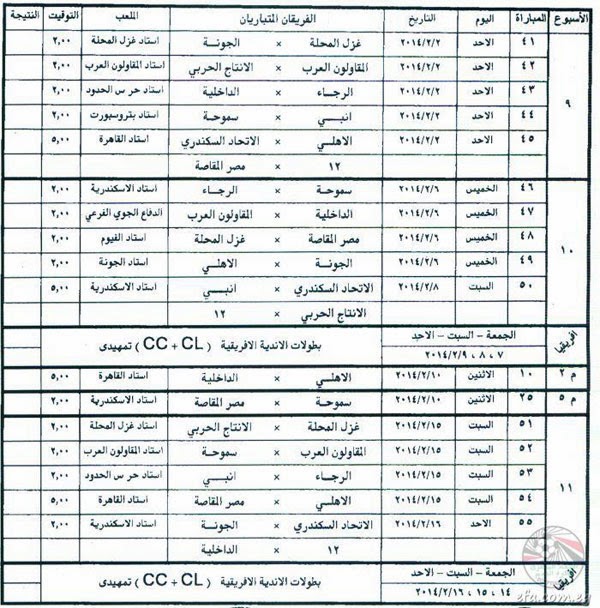 الأسبوع المباراة اليوم التاريخ الفريقان المتباريان الملعب التوقيت النتيجة
٩
٤١ الاحد ٢٠١٤/٢/٢ غزل المحلة × الجونة استاد غزل المحلة ٢,٠٠
٤٢ الاحد ٢٠١٤/٢/٢ المقاولون العرب × الانتاج الحربي استاد المقاولون العرب ٢,٠٠
٤٣ الاحد ٢٠١٤/٢/٢ الرجاء × الداخلية استاد حرس الحدود ٢,٠٠
٤٤ الاحد ٢٠١٤/٢/٢ انبي × سموحة استاد بتروسبورت ٢,٠٠
٤٥ الاحد ٢٠١٤/٢/٢ الاهلي × الاتحاد السكندري استاد القاهرة ٥,٠٠
١٢ × مصر المقاصة
١٠
٤٦ الخميس ٢٠١٤/٢/٦ سموحة × الرجاء استاد الاسكندرية ٢,٠٠
٤٧ الخميس ٢٠١٤/٢/٦ الداخلية × المقاولون العرب الدفاع الجوي الفرعي ٢,٠٠
٤٨ الخميس ٢٠١٤/٢/٦ مصر المقاصة × غزل المحلة استاد الفيوم ٢,٠٠
٤٩ الخميس ٢٠١٤/٢/٦ الجونة × الاهلي استاد الجونة ٢,٠٠
٥٠ السبت ٢٠١٤/٢/٨ الاتحاد السكندري × انبي استاد الاسكندرية ٥,٠٠
الانتاج الحربي × ١٢
افريقيا الجمعة - السبت - الاحد بطولات الاندية الافريقية ( CC + CL ) تمهيدى
٧ ، ٨ ، ٢٠١٤/٢/٩
م ٢ ١٠ الاثنين ٢٠١٤/٢/١٠ الاهلي × الداخلية استاد القاهرة ٥,٠٠
م ٥ ٢٥ الاثنين ٢٠١٤/٢/١٠ سموحة × مصر المقاصة استاد الاسكندرية ٢,٠٠
١١
٥١ السبت ٢٠١٤/٢/١٥ غزل المحلة × الانتاج الحربي استاد غزل المحلة ٢,٠٠
٥٢ السبت ٢٠١٤/٢/١٥ المقاولون العرب × سموحة استاد المقاولون العرب ٢,٠٠
٥٣ السبت ٢٠١٤/٢/١٥ الرجاء × انبي استاد حرس الحدود ٢,٠٠
٥٤ السبت ٢٠١٤/٢/١٥ الاهلي × مصر المقاصة استاد القاهرة ٥,٠٠
٥٥ الاحد ٢٠١٤/٢/١٦ الاتحاد السكندري × الجونة استاد الاسكندرية ٢,٠٠
١٢ × الداخلية
افريقيا الجمعة - السبت - الاحد بطولات الاندية الافريقية ( CC + CL ) تمهيدى
١٤ ، ١٥ ، ٢٠١٤/٢/١٦
efa.com.eg